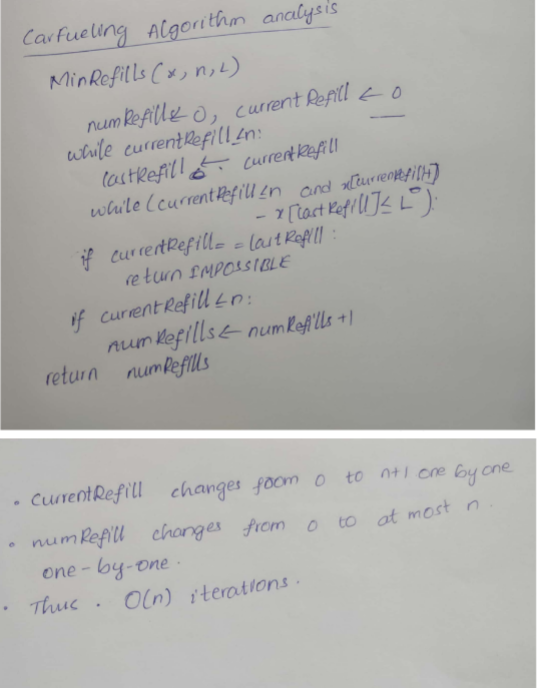 Car Fueling Algorithm analysis
MinRefills (x, n, L)
numRefills ← 0, currentRefill ← 0
while currentRefill ≤ n:
lastRefill ← currentRefill
while (currentRefill ≤ n and x[currentRefill+1]
- x[lastRefill] ≤ L):
if currentRefill == lastRefill:
return IMPOSSIBLE
if currentRefill ≤ n:
numRefills ← numRefills + 1
return numRefills
• CurrentRefill changes from 0 to n+1 one by one
• numRefill changes from 0 to at most n.
one-by-one.
• Thus . O(n) iterations.